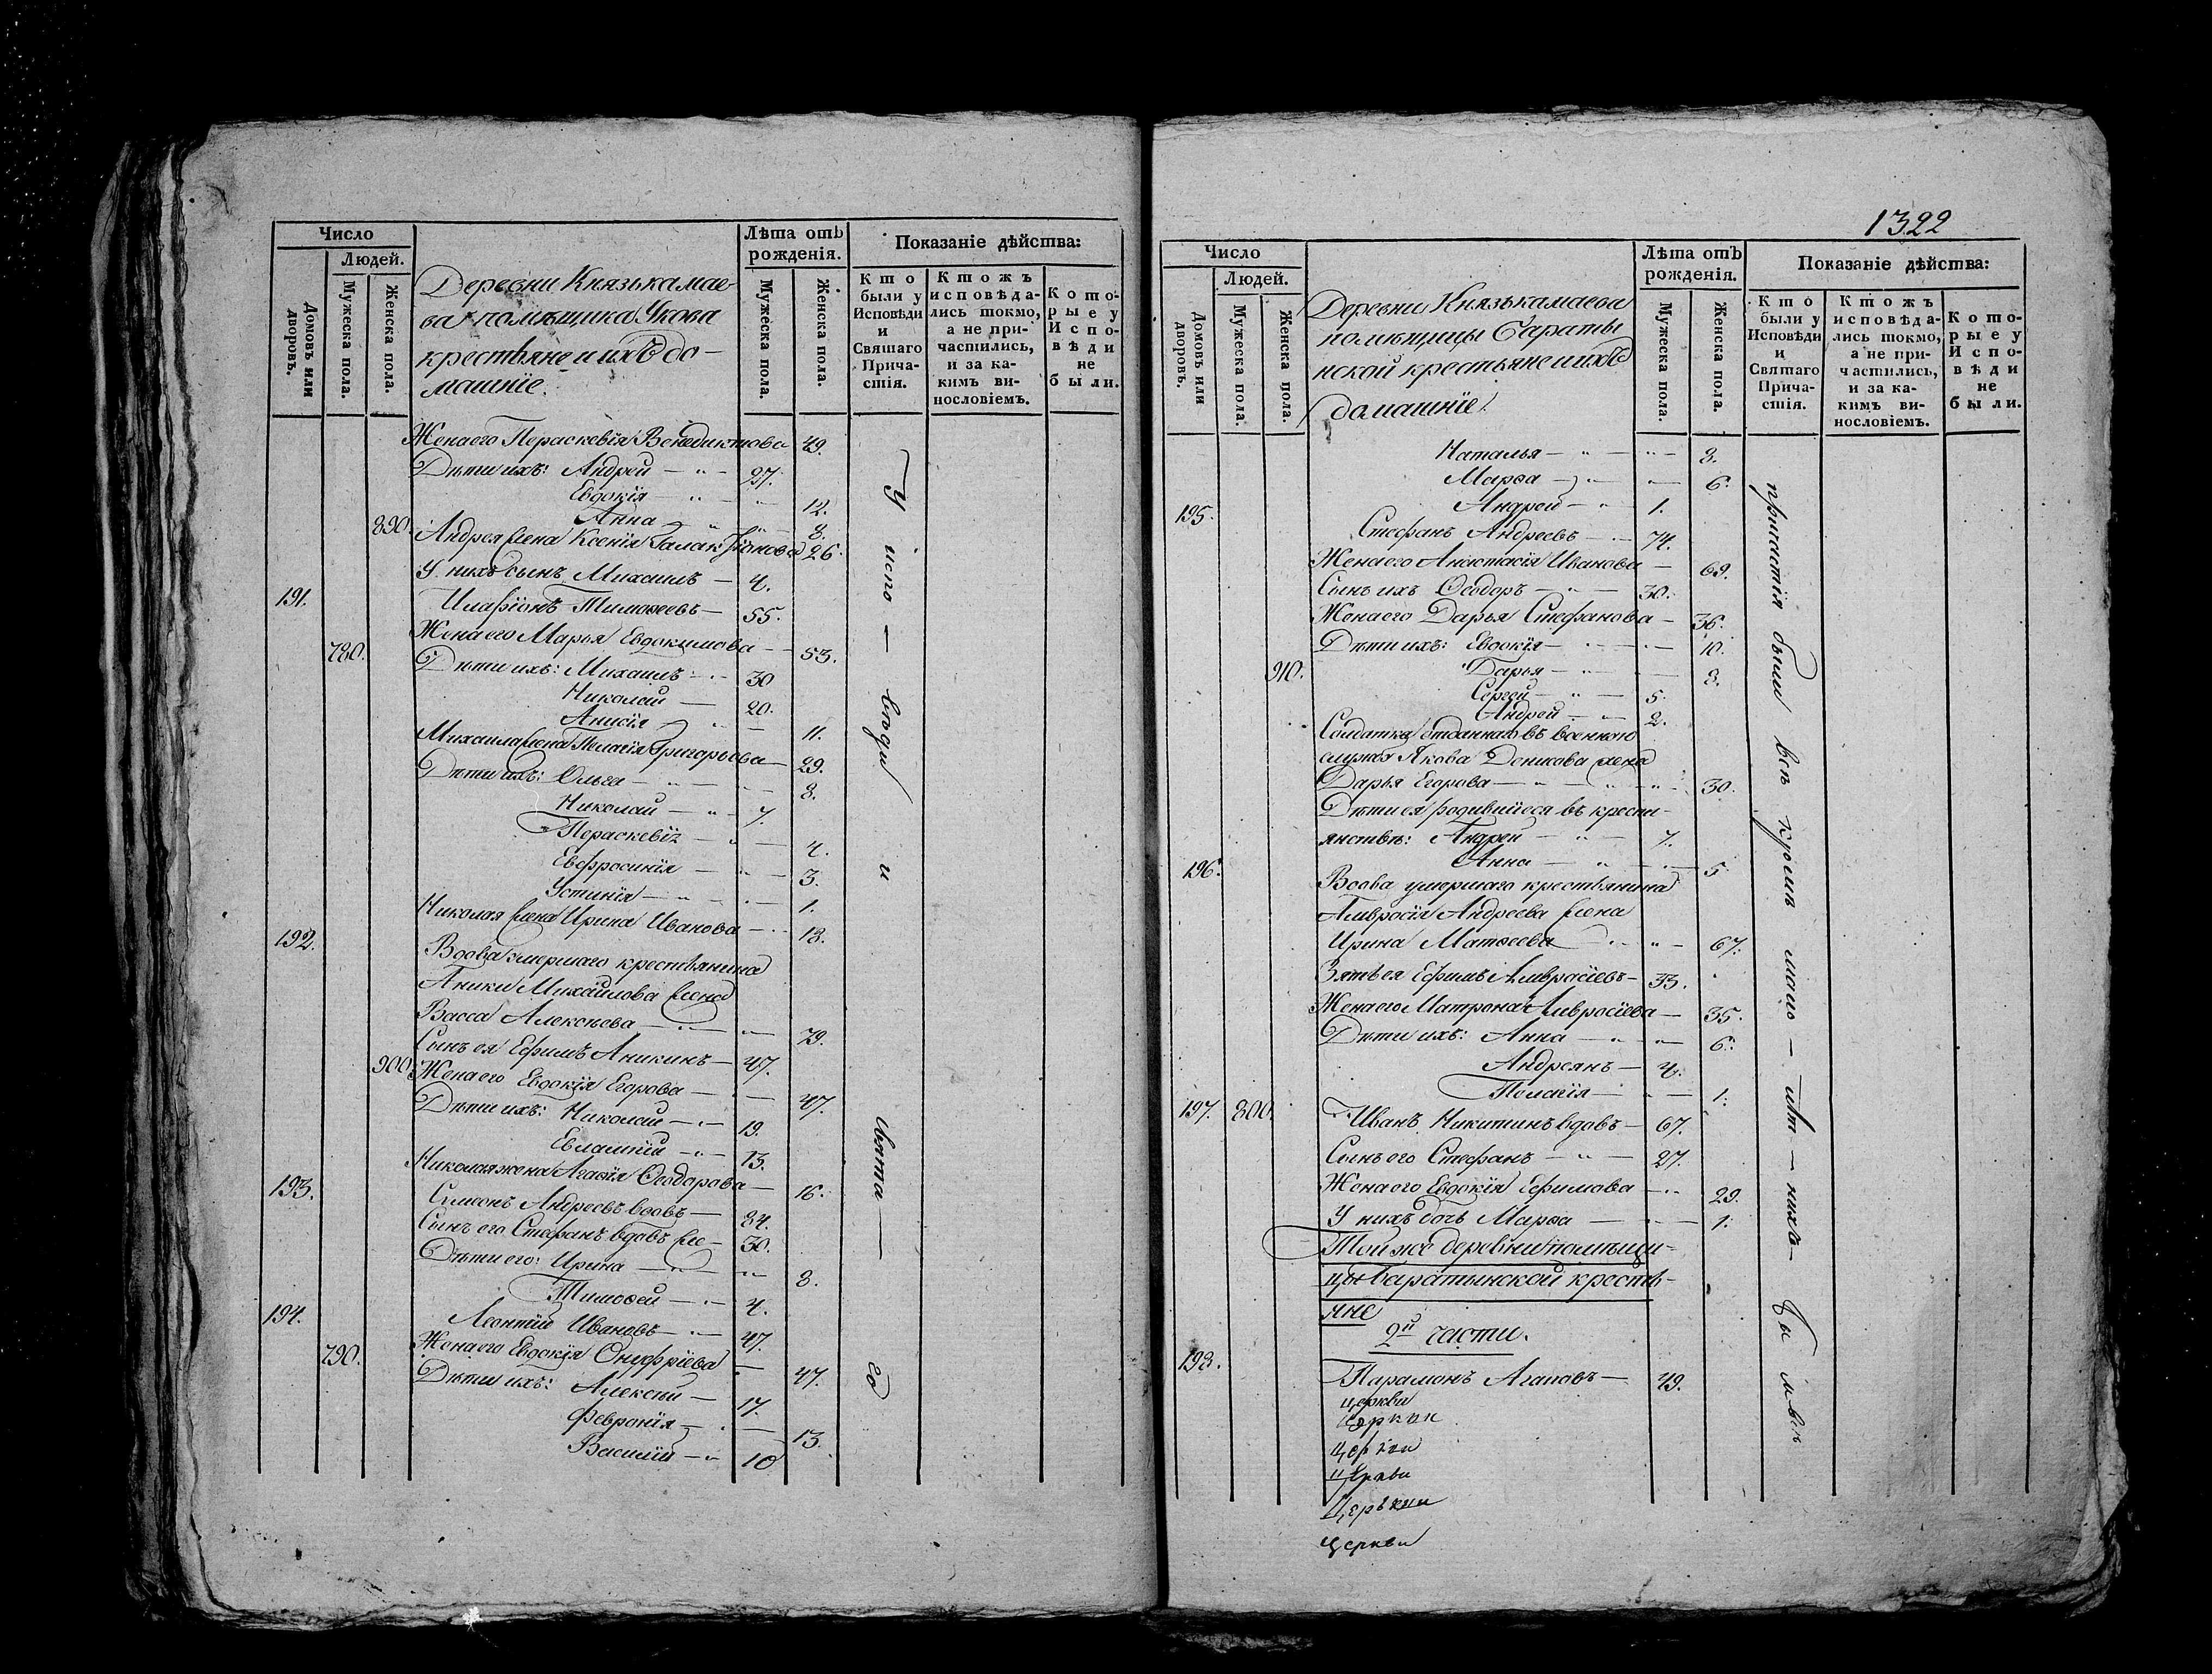 Число
Людей.
Домовъ или дворовъ.
Мужеска пола.
Женска пола.
Деревни Князькамае-
ва помѣщика Укова
крестьяне и ихъ до-
машніе.
Лѣта отъ рожденія.
Мужеска пола.
Женска пола.
Показаніе дѣйства:
Кто были у Исповѣди и Святаго Причастія.
Ктожъ исповѣдались токмо, а не причастились, и за какимъ винословіемъ.
Которые у Исповѣди не были.
Жена его Параскевія Венедиктова 49.
Дѣти ихъ: Андрей — 27.
Евдокія — 12.
Анна — 8.
890. Андрея жена Ксенія Галактіонова 26.
У нихъ сынъ Михаилъ — 4.
191. Иларіонъ Тимоѳеевъ — 55.
Жена его Марья Евдокимова — 53.
780. Дѣти ихъ: Михаилъ — 30
Николай — 20.
Анисія — 11.
Михаила жена Пелагія Григорьева — 29.
Дѣти ихъ: Ольга — 8.
Николай — 7.
Параскевія — 4.
Евфросинія — 3.
Устинія — 1.
Николая жена Ирина Иванова — 18.
192. Вдова умершаго крестьянина
Аники Михайлова жена
Васса Алексѣева — 79.
Сынъ ея Ефимъ Аникинъ — 47.
900. Жена его Евдокія Егорова — 47.
Дѣти ихъ: Николай — 19.
Евлампій — 13.
Николая жена Агаѳія Ѳеодорова — 16.
193. Симеонъ Андреевъ вдовъ — 84.
Сынъ его Стефанъ вдовъ же — 30.
Дѣти его: Ирина — 8.
Тимоѳей — 4.
194. Леонтій Ивановъ — 47.
Жена его Евдокія Онуфріева — 47.
790. Дѣти ихъ: Алексѣй — 17.
Февронія — 13.
Василій — 10
У испо — вѣди и свята — го
1322
Число
Людей.
Домовъ или дворовъ.
Мужеска пола.
Женска пола.
Деревни Князькамаева
помѣщицы Бараты-
нской крестьяне и ихъ
домашніе.
Лѣта отъ рожденія.
Мужеска пола.
Женска пола.
Показаніе дѣйства:
Кто были у Исповѣди и Святаго Причастія.
Ктожъ исповѣдались токмо, а не причастились, и за какимъ винословіемъ.
Которые у Исповѣди не были.
Наталья — 8.
Марѳа — 6.
Андрей — 1.
195. Стефанъ Андреевъ — 74.
Жена его Анастасія Иванова — 69.
Сынъ ихъ Ѳеодоръ — 30.
Жена его Дарья Стефанова — 36.
Дѣти ихъ: Евдокія — 10.
910. Дарья — 8.
Сергей — 5.
Андрей — 2.
Солдатка отданнаго въ военную
службу Якова жена
Дарья Егорова — 30.
Дѣти ея родившіеся въ кресть-
янствѣ: Андрей — 7.
Анна — 5
196. Вдова умершаго крестьянина
Амвросія Андреева жена
Ирина Матѳеева — 67.
Зять ея Ефимъ Амвросіевъ — 33.
Жена его Матрона Амвросіева — 35.
Дѣти ихъ: Анна — 6.
Андреянъ — 4.
Пелагія — 1.
197. 800. Иванъ Никитинъ вдовъ — 67.
Сынъ его Стефанъ — 27.
Жена его Евдокія Ефимова — 29.
У нихъ дочь Марѳа — 1.
Той же деревни помѣщи-
цы Баратынской крестья-
яне
2й части.
198. Парамонъ Агаповъ — 49.
церкви
церкви
церкви
церкви
церкви
церкви
причастія были всѣ кромѣ мало — лѣт — нихъ